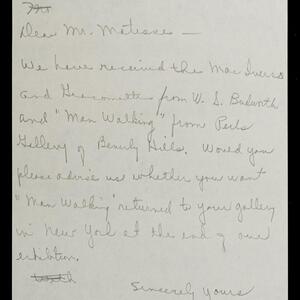 Dear Mr. Matisse —
We have received the Mac Ivers
and Giacometti from W. S. Budworth
and "Man Walking" from Perls
Gallery of Beverly Hills. Would you
please advise us whether you want
"Man Walking" returned to your gallery
in New York at the end of our
exhibition.
Sincerely yours